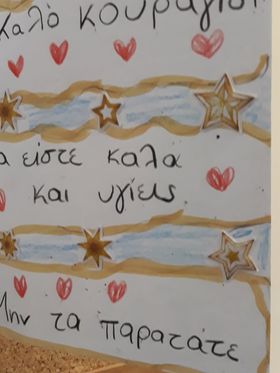 Καλό κουράγιο!
α είστε καλα
και υγίεις
Μην τα παρατάτε